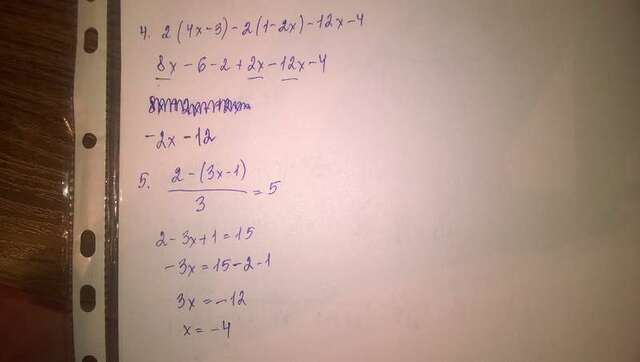 4. 2(4x-3)-2(1-2x)-12x-4
8x-6-2+2x-12x-4
-2x-12
5. 2-(3x-1)/3 = 5
2-3x+1=15
-3x=15-2-1
3x=-12
x=-4